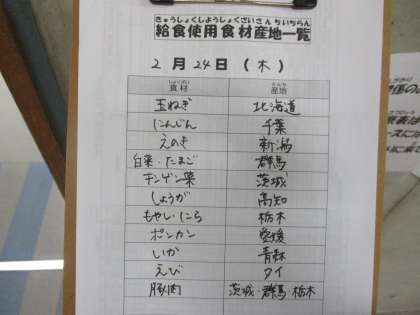 きゅうしょくしようしょくざいさんちいちらん
給食使用食材産地一覧
2月24日(木)
しょくざい さんち
食材 産地
玉ねぎ 北海道
にんじん 千葉
えのき 新潟
白菜・たまご 群馬
チンゲン菜 茨城
しょうが 高知
もやし・にら 栃木
ポンカン 愛媛
いか 青森
えび タイ
豚肉 茨城 群馬 栃木